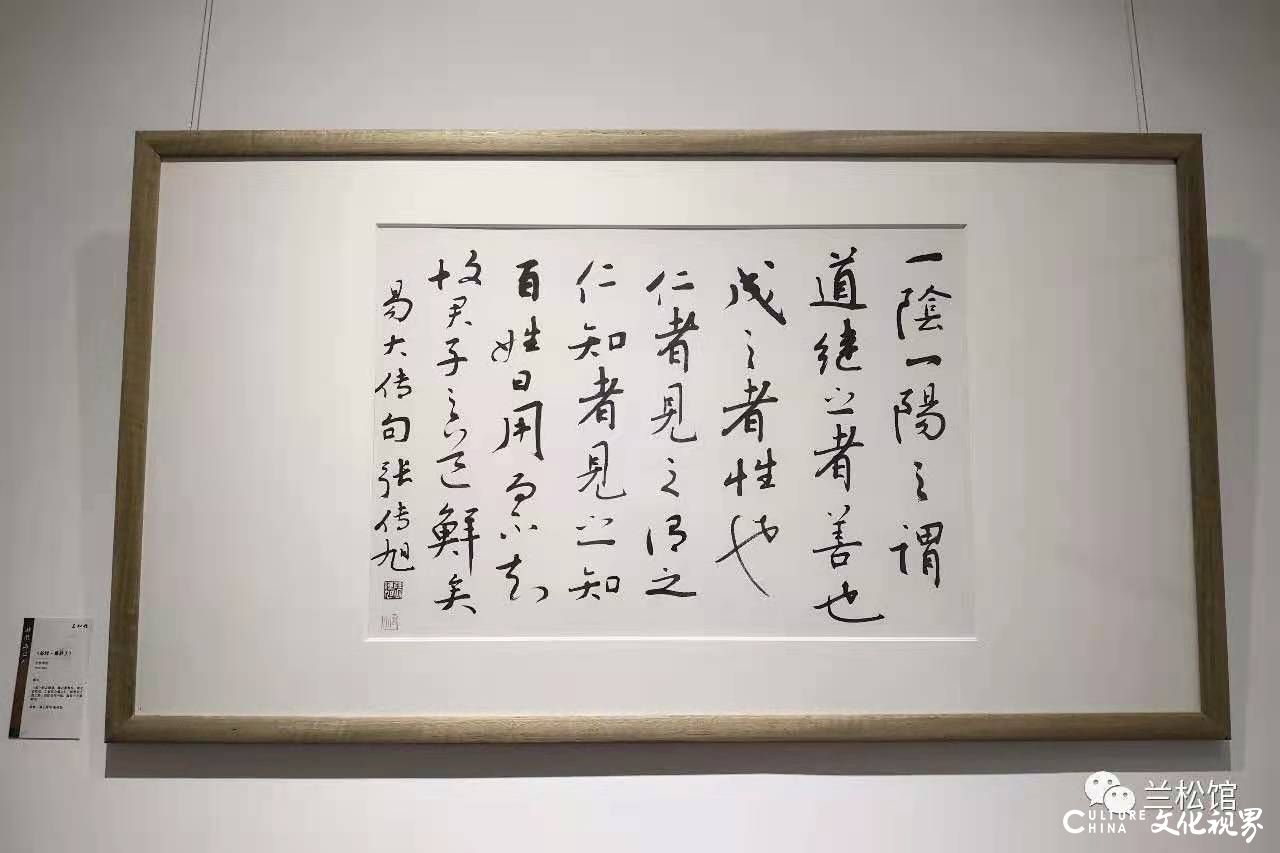 一陰一陽之谓
道继之者善也
成之者性也
仁者見之谓之
仁知者見之知
百姓日用而不知
故君子之道鲜矣
易大传句 张传旭
兰松馆
CULTURE CHINA 文化视界